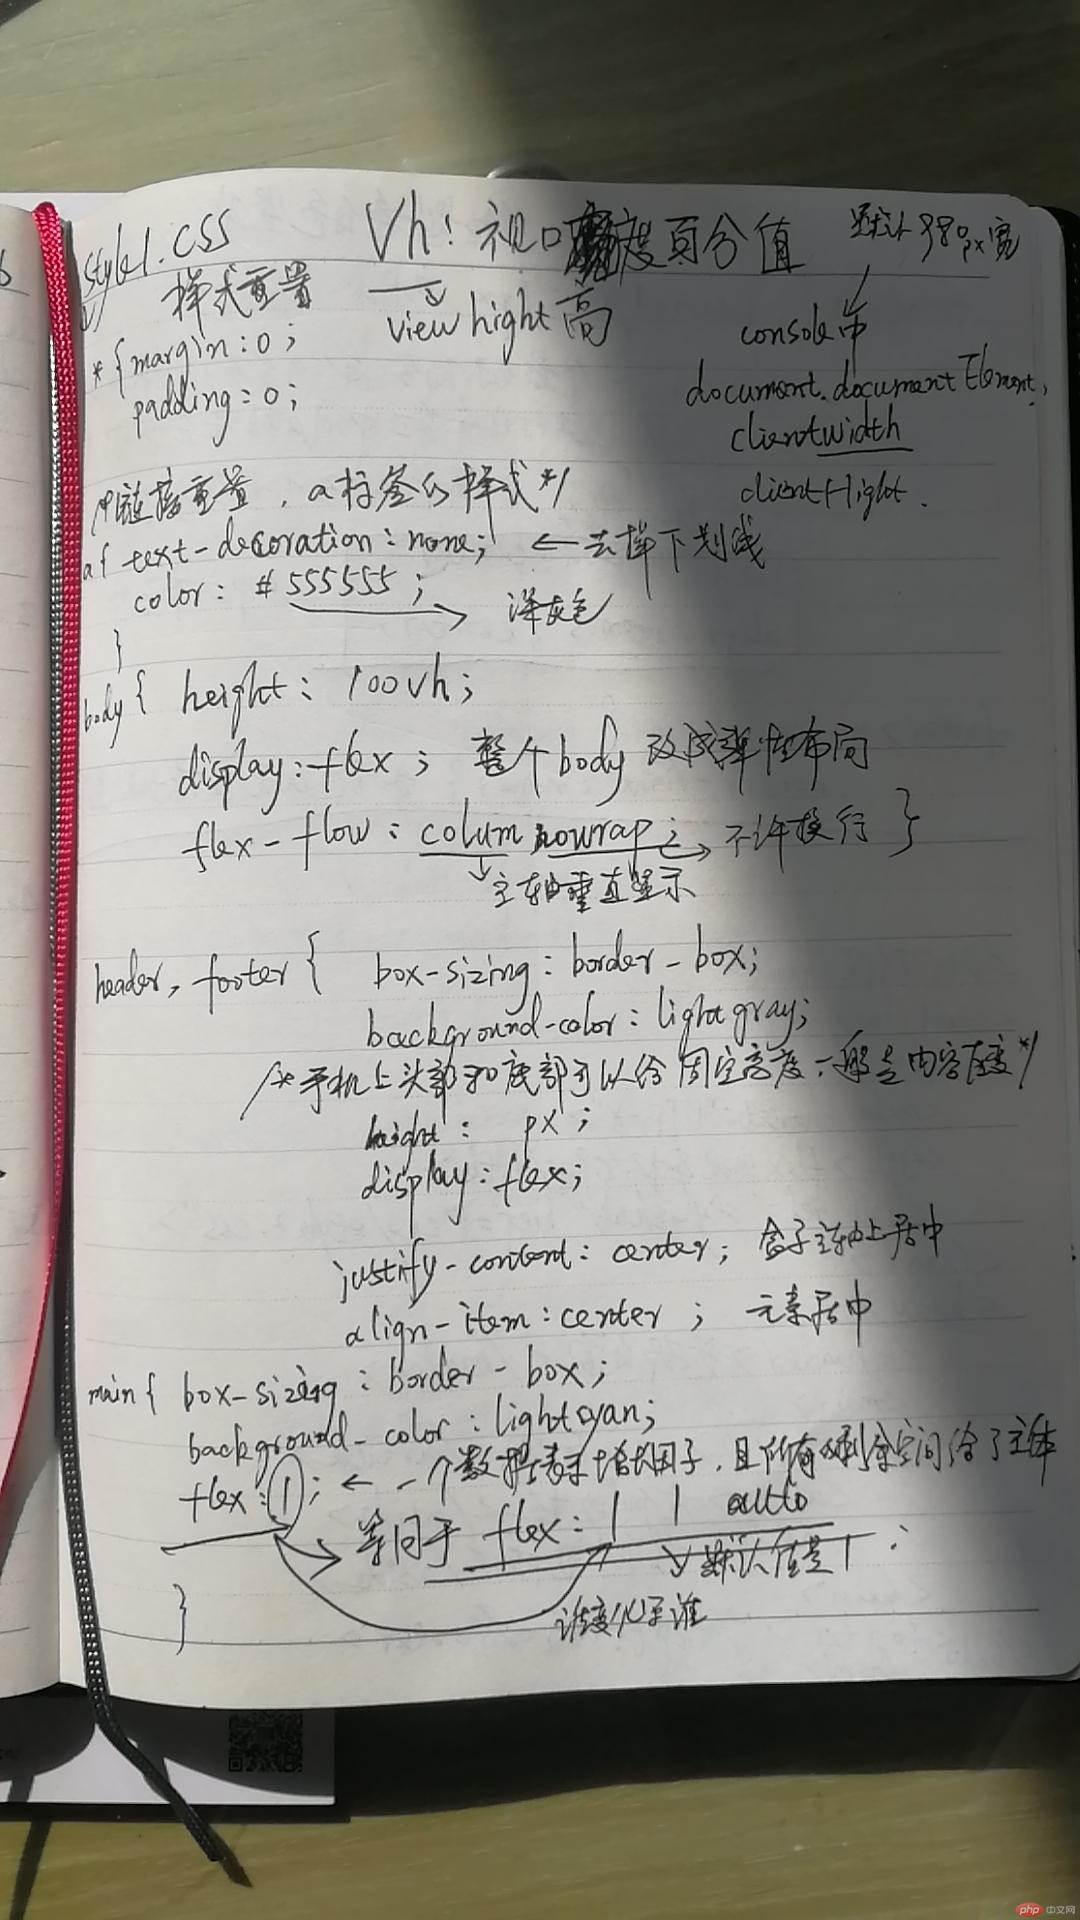 style1.css
样式重置
Vh: 视口高度百分值
view hight 高
默认980px宽
console中
document.documentElement.
clientwidth
clientHight.
*{margin:0;
padding:0;
/*链接重置,a标签的样式*/
a{ text-decoration:none; ←去掉下划线
color: #555555; 深灰色
}
body{ height: 100vh;
display:flex; 整个body改成弹性布局
flex-flow: colum nowrap; 不许换行 }
主轴垂直显示
header, footer{ box-sizing:border-box;
background-color:lightgray;
/*手机上头部和底部可以给固定高度,一般是内容高度*/
height: px;
display:flex;
justify-content: center; 盒子主轴上居中
align-item:center; 元素居中
main{ box-sizing:border-box;
background-color:lightcyan;
flex:1; ← 一个数据表示增长因子,且所有剩余空间给了主体
等同于 flex: 1 1 auto
默认值是1
谁变化写谁
}
php 中文网